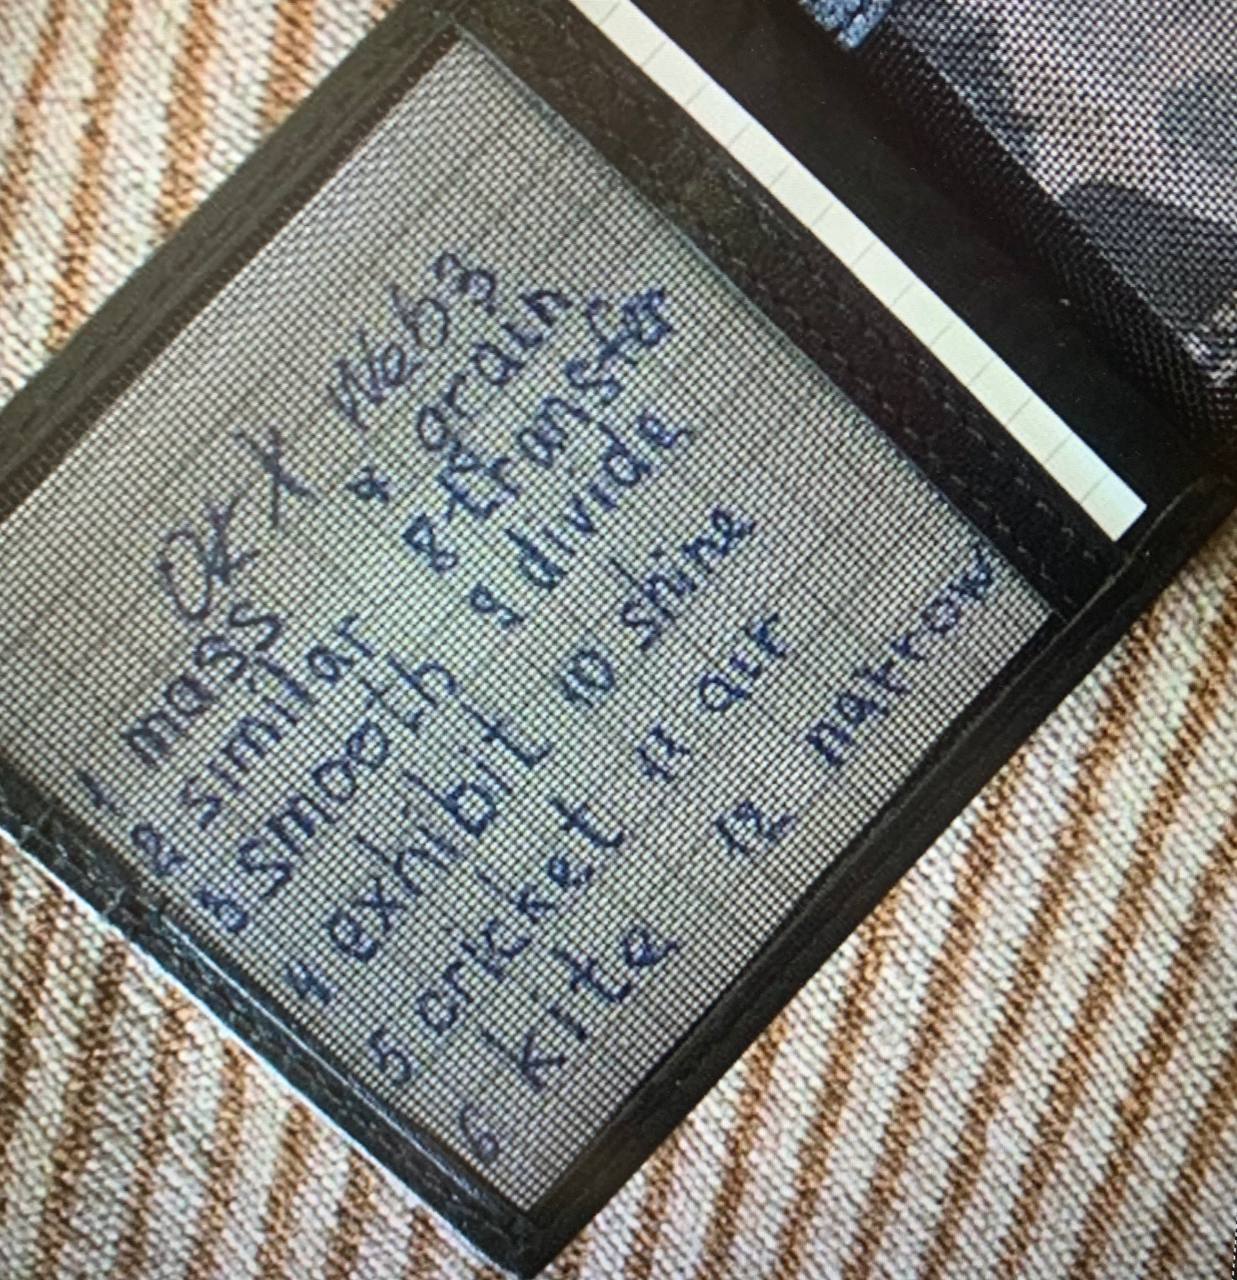 OKX Web3
1 mass 7 grain
2 similar 8 transfer
3 smooth 9 divide
4 exhibit 10 shine
5 cricket 11 air
6 kite 12 narrow